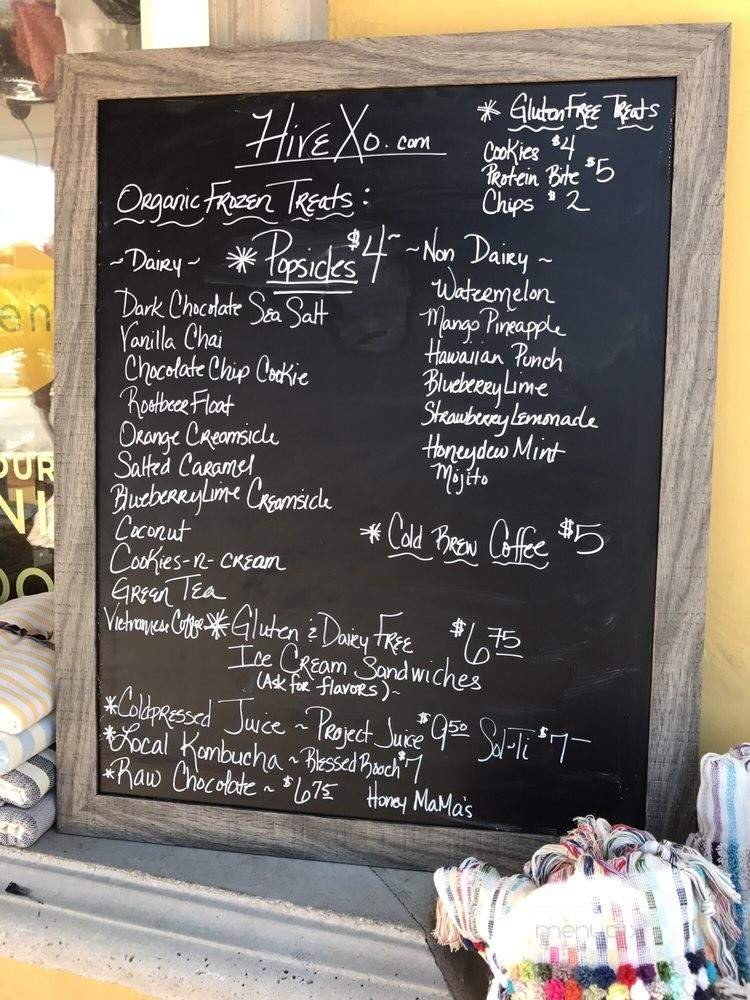 HiveXo.com
* Gluten Free Treats
Cookies $4
Protein Bite $5
Chips $2
Organic Frozen Treats:
* Popsicles $4~
~Dairy~
Dark Chocolate Sea Salt
Vanilla Chai
Chocolate Chip Cookie
Rootbeer Float
Orange Creamsicle
Salted Caramel
Blueberry Lime Creamsicle
Coconut
Cookies-n-cream
Green Tea
Vietnamese Coffee
~Non Dairy~
Watermelon
Mango Pineapple
Hawaiian Punch
Blueberry Lime
Strawberry Lemonade
Honeydew Mint
Mojito
* Cold Brew Coffee $5
* Gluten & Dairy Free $6.75
Ice Cream Sandwiches
(Ask for flavors)~
* Coldpressed Juice ~ Project Juice $9.50 Sol-Ti $7-
* Local Kombucha ~ Blessed Booch $7
* Raw Chocolate ~ $6.75 Honey MaMa's
en
OUR
NI
menu